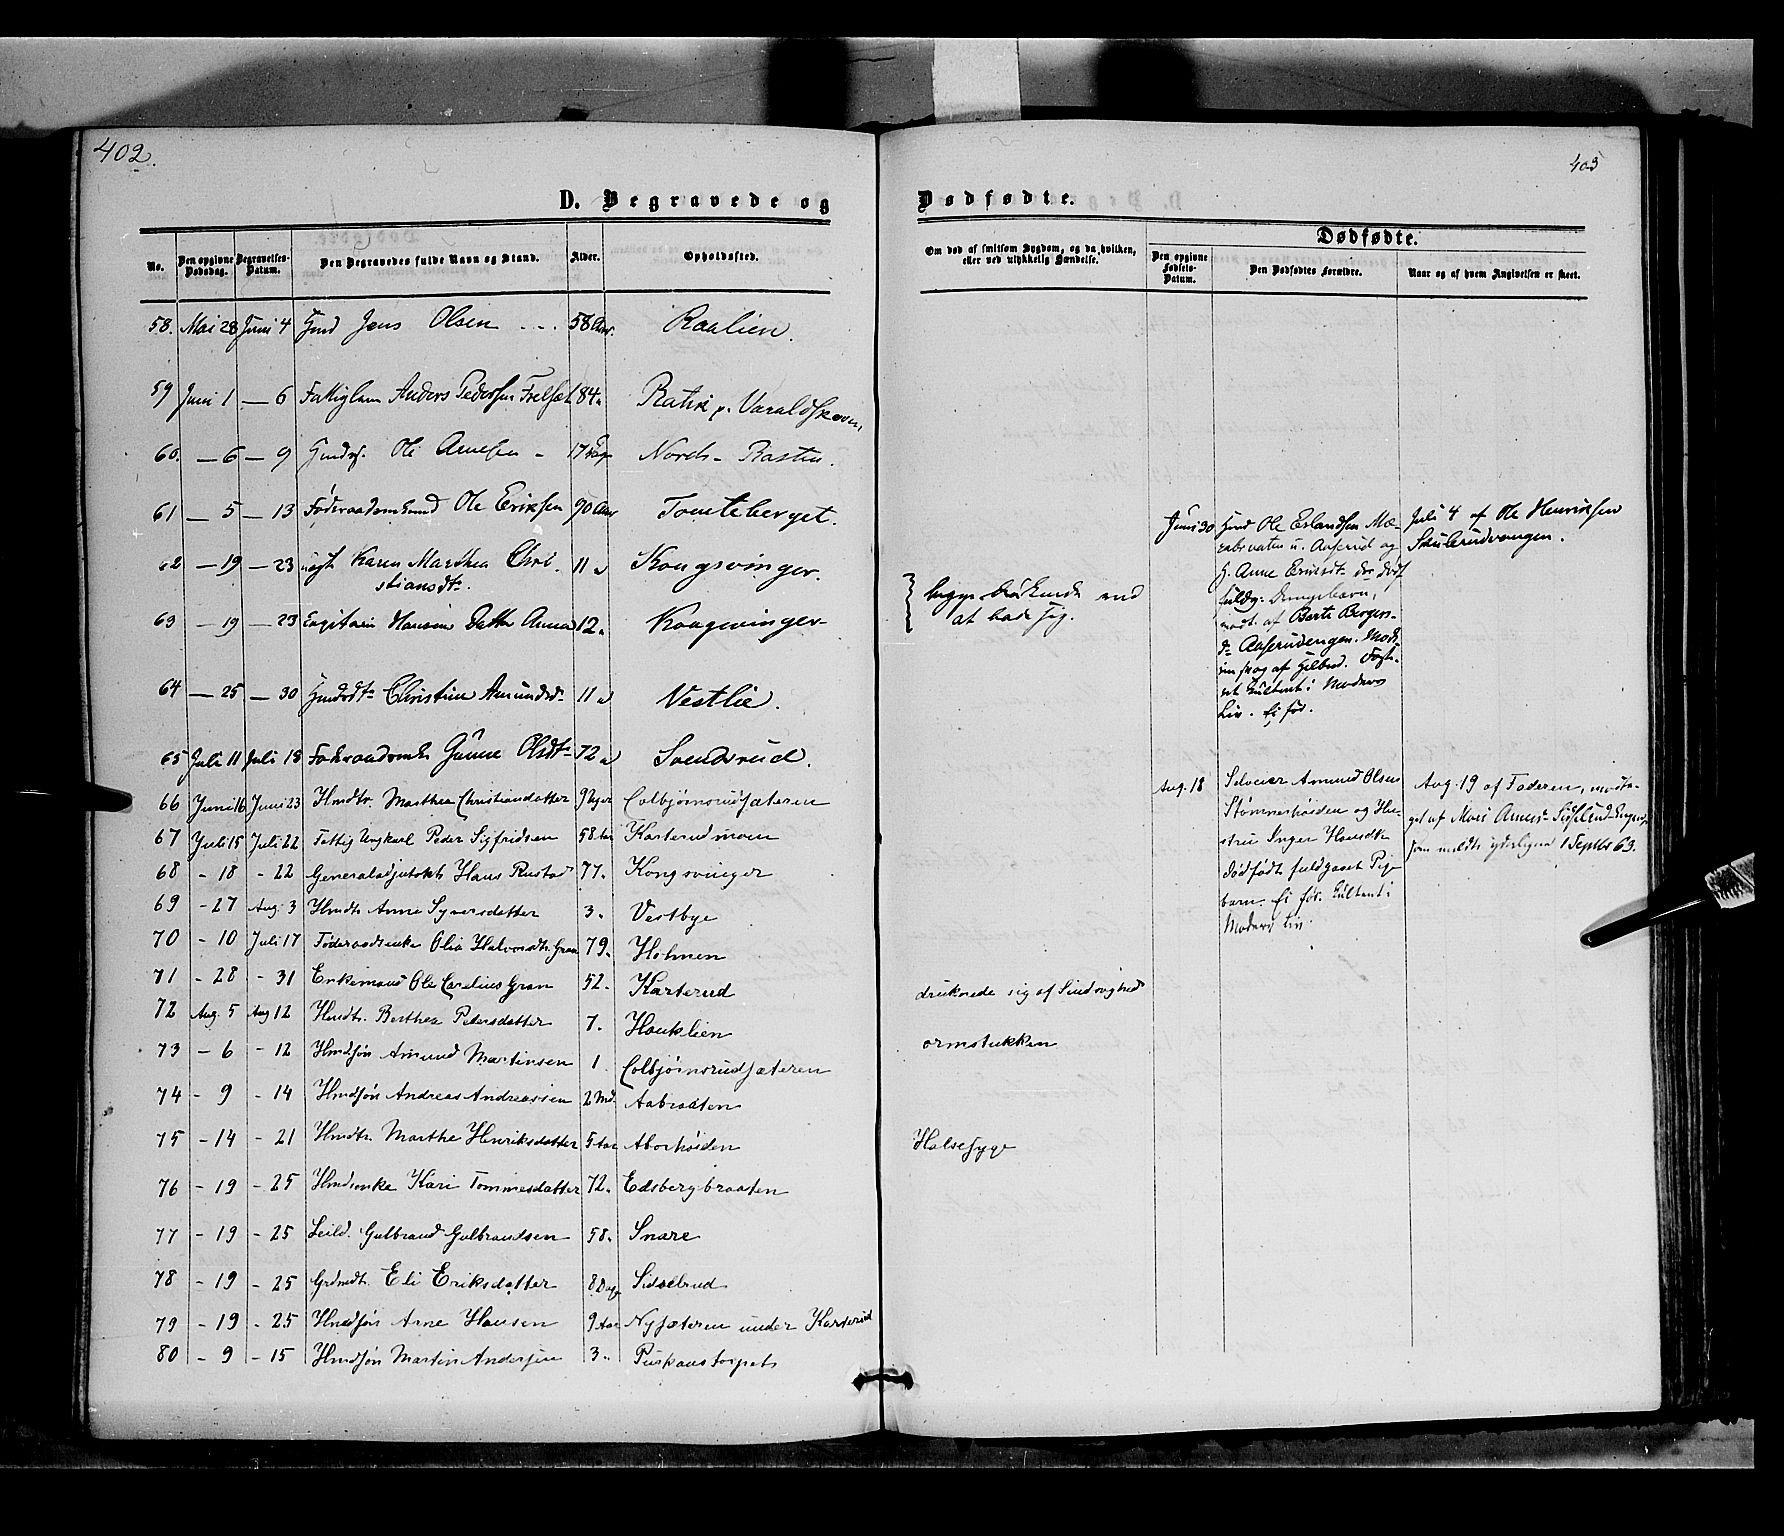 402.
403
D. Begravede og
Dødfødte.
No. Den opgivne Dødsdag. Begravelses-Datum. Den Begravedes fulde Navn og Stand. Alder. Opholdssted.
Om død af smitsom Sygdom, og da hvilken, eller ved ulykkelig Hændelse.
Dødfødte.
Den opgivne Fødsels-Datum. Den Dødfødtes Forældre. Naar og af hvem Angivelsen er skeet.
58. Mai 28 Juni 4 Hmd Jens Olsen 58 Aar. Raalien.
59 Juni 1 — 6 Fattiglem Anders Pedersen 84 " Varaldskoven
60. — 6 — 9 Ole Arnesen - 17 Dage Nordr. Rasten.
61 — 5 — 13 Føderaadsmand Ole Eriksen 90 Aar Tomteberget.
62 — 19 — 23 Karen Marthea Chri-
stiansdtr. 11 " Kongsvinger.
63 — 19 — 23 Hansens Datter Anna 12 " Kongsvinger
at bade sig.
64 — 25 — 30 Christine Amundsd. 11 " Vestlie.
65 Juli 11 Juli 18 Gunne Olsdtr 72 " Svendsrud.
66 Juni 16 Juni 23 Hmdtr. Marthea Christiansdatter 9 Uger Colbjørnsrudsæteren
67 Juli 15 Juli 22 Fattig Ungkarl Peder Sigfridsen 58 Aar Karterudmoen
68 - 18 - 22 Generaladjutskt Hans Rustad 77. Kongsvinger
69 - 27 Aug. 3 Hmdtr. Anne Syversdatter 3. Vestbye
70 - 10 Juli 17 Føderaadsenke Olia Halvorsdtr. Gran 79. Holmen
71 - 28 - 31 Enkemand Ole Carelius Gran 52. Karterud
druknede sig af Sindsvaghed
72 Aug. 5 Aug 12 Hmdtr. Berthea Pedersdatter 7. Hauklien
ormstukken
73 - 6 - 12 Hmdsøn Amund Martinsen 1. Colbjørnsrudsæteren
74 - 9 - 14 Hmdsøn Andreas Andreassen 2 Md. Aabraaten
75 - 14 - 21 Hmdtr. Marthe Henriksdatter 5 Aar Aborhøiden
Halsesyge
76 - 19 - 25 Hmdenke Kari Tommesdatter 72. Edsbergbraaten
77 - 19 - 25 Leild. Gulbrand Gulbrandsen 58. Snare
78 - 19 - 25 Grdmdtr. Eli Eriksdatter 8 Dage Sidselrud
79 - 19 - 25 Hmdsøn Arne Hansen 9 Aar Nysæteren under Karterud
80 - 9 - 15 Hmdsøn Martin Andersen 3. Puskaustorpet
Juni 30 Hmd Ole Erlandsen Mæ-
u. Aaserud og
H. Anne
fuldg. Drengebarn,
modt. af Berte Bergers-
d. Aaserudengen.
af Gilbud.
i Moders
Liv. Ei før.
Juli 4 af Ole Henriksen
Skulerudvangen.
Aug. 18 Selveier Amund Olsen
Strømnerhøiden og Hu-
stru Inger Hansdtr
dødfødt fuldgaaet Pige-
barn. Ei før.
Moders Liv
Aug. 19 af Faderen, modta-
get af Mari
som meldte yderligere 1 Septbr 63.